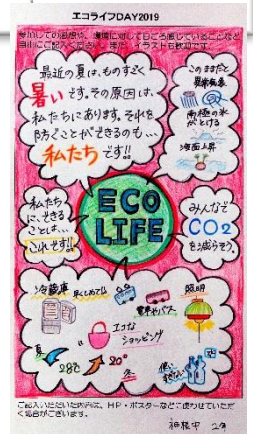 エコライフDAY2019
参加しての感想や、環境に対して日ごろ感じていることなど
自由にご記入ください。また、イラストも歓迎です。
最近の夏は、ものすごく
暑いです。その原因は、
私たちにあります。それを
防ぐことができるのも…
私たちです!!
このままだと
異常気象
南極の氷
がとける
海面上昇
私たち
に、できる
ことは…
これです!!
ECO
LIFE
みんなで
CO2
を減らそう。
冷蔵庫
早くしめて
電車やバス
照明
エコな
ショッピング
夏
28℃
20°
冬
使い
すぎない
ご記入いただいた内容は、HP・ポスターなどに使わせていただ
く場合がございます。